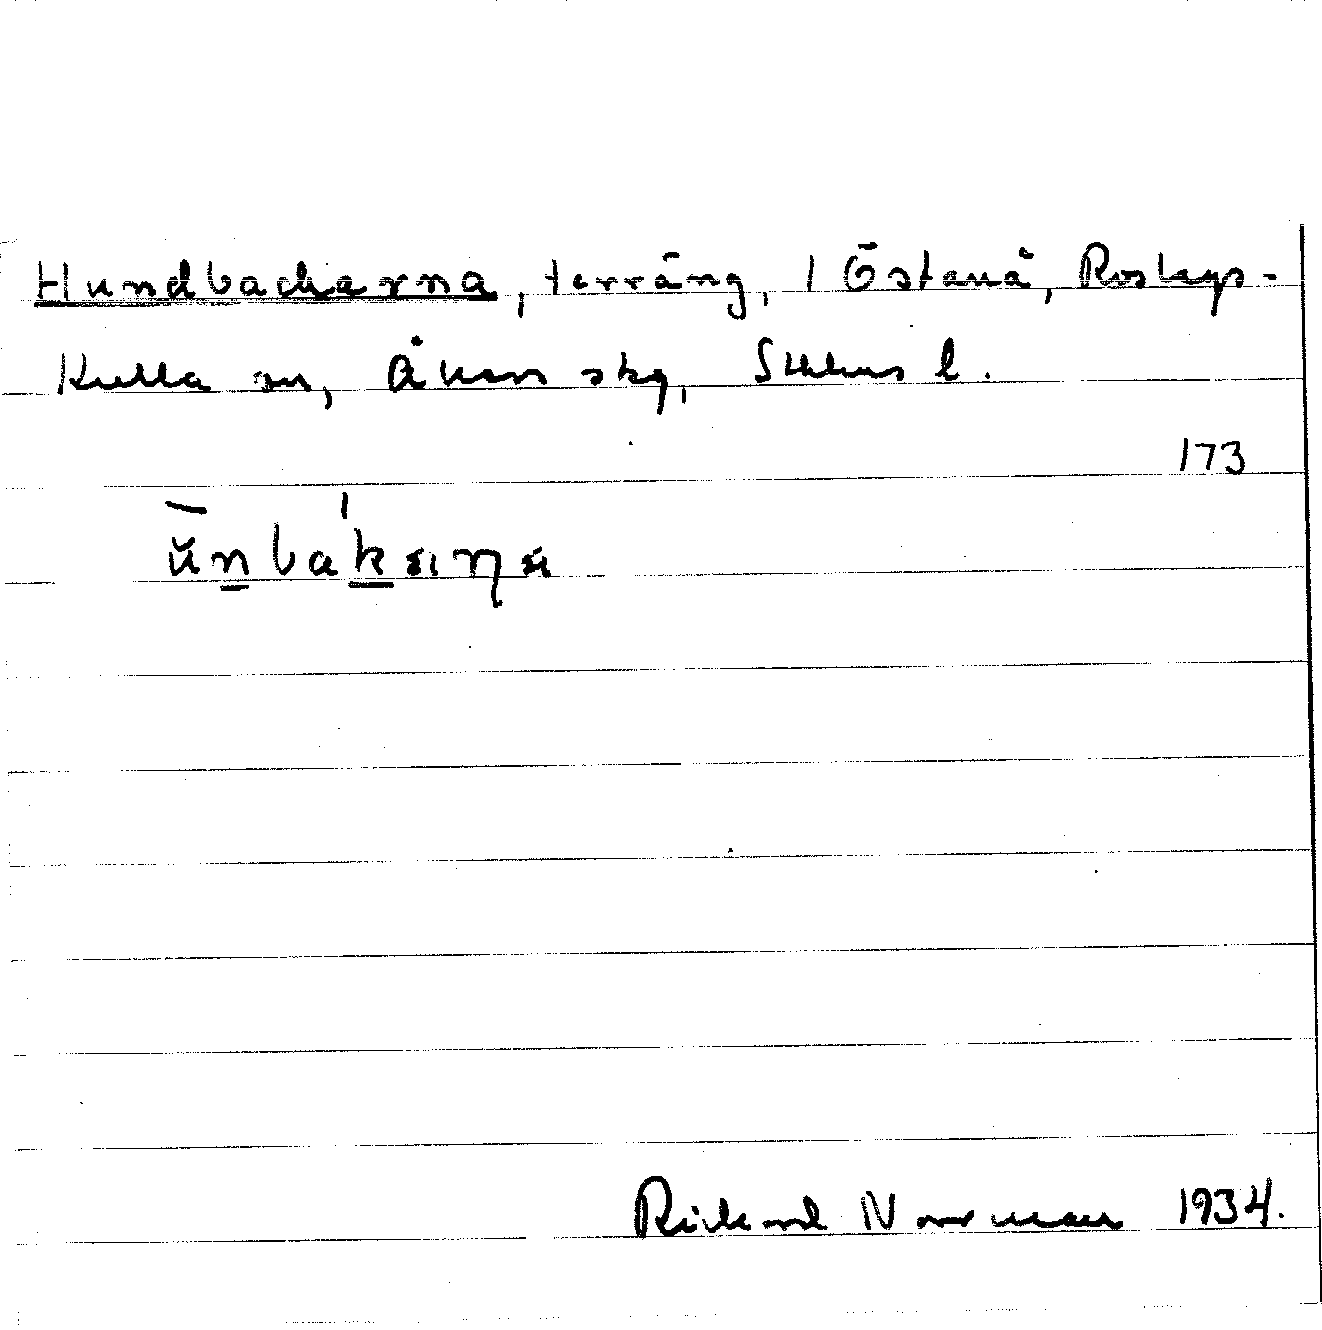 Hundbackarna, terräng, 1 Östanå, Roslags-
Kulla sn, Åkers skg, Sthlms l.
173
Rickard Norrman 1934.